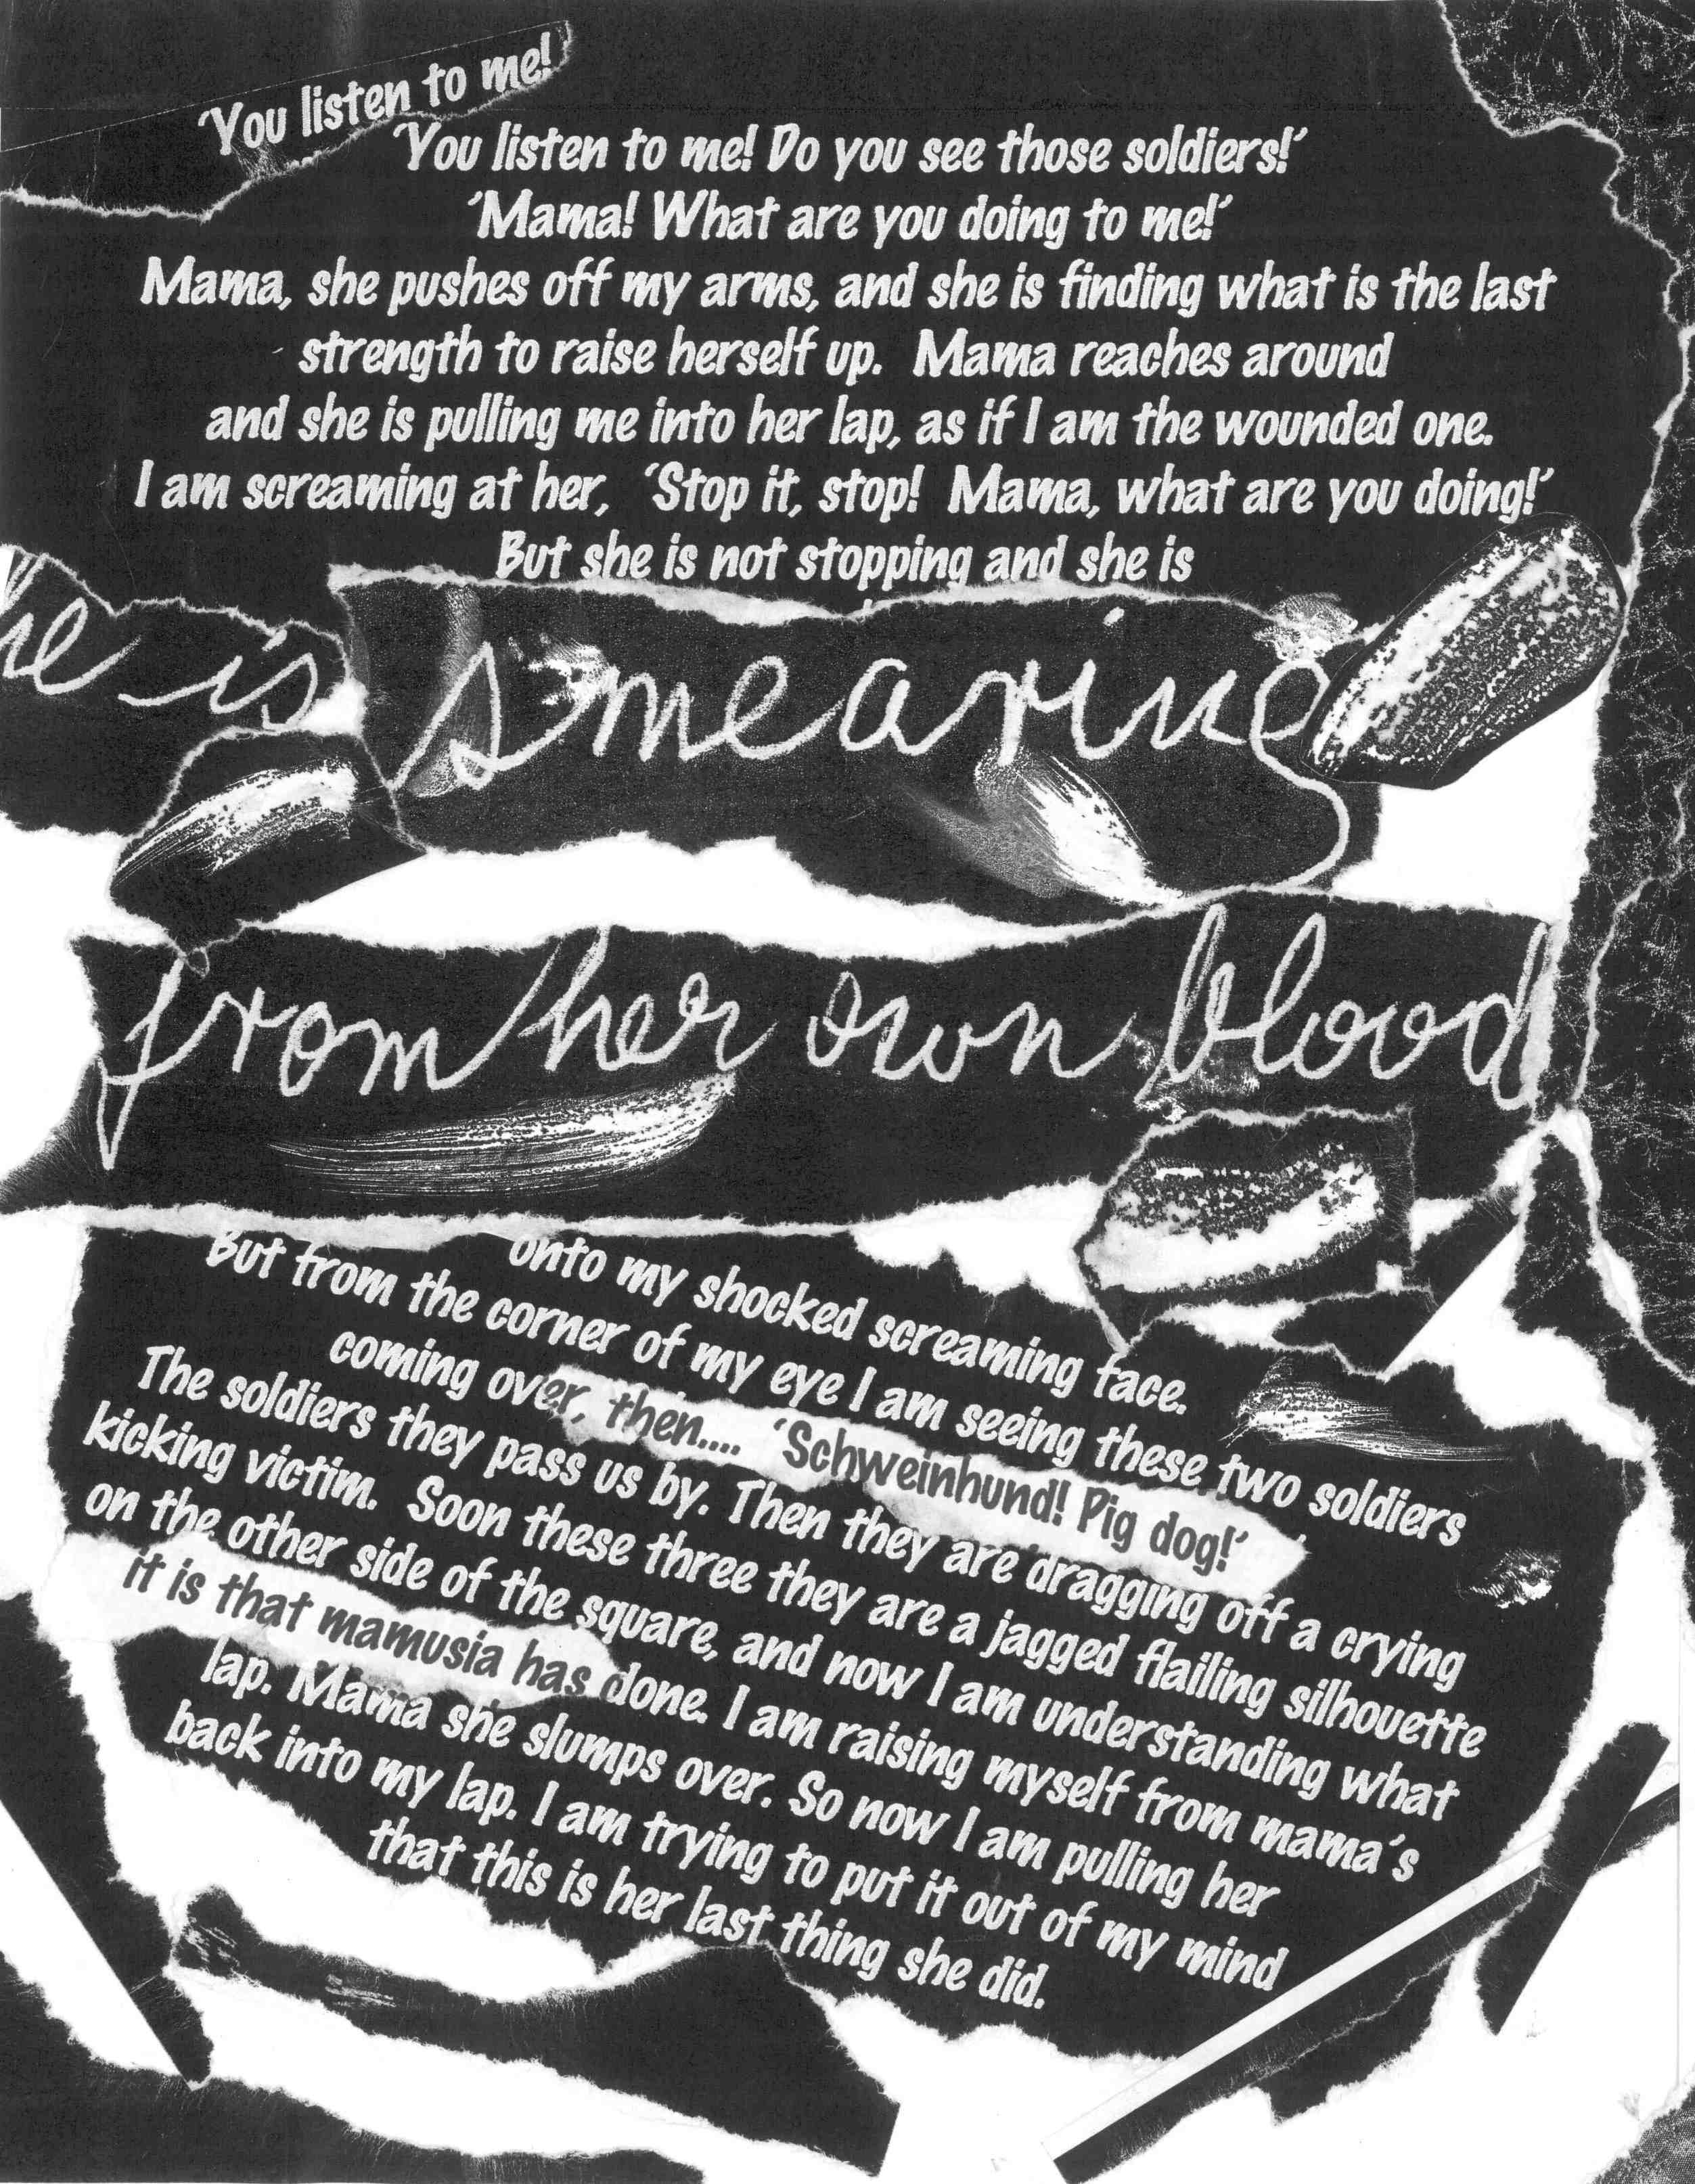 'You listen to me!
'You listen to me! Do you see those soldiers!'
'Mama! What are you doing to me!'
Mama, she pushes off my arms, and she is finding what is the last
strength to raise herself up. Mama reaches around
and she is pulling me into her lap, as if I am the wounded one.
I am screaming at her, 'Stop it, stop! Mama, what are you doing!'
But she is not stopping and she is
he is smearing
from her own blood
onto my shocked screaming face.
But from the corner of my eye I am seeing these two soldiers
coming over, then.... 'Schweinhund! Pig dog!'
The soldiers they pass us by. Then they are dragging off a crying
kicking victim. Soon these three they are a jagged flailing silhouette
on the other side of the square, and now I am understanding what
it is that mamusia has done. I am raising myself from mama's
lap. Mama she slumps over. So now I am pulling her
back into my lap. I am trying to put it out of my mind
that this is her last thing she did.